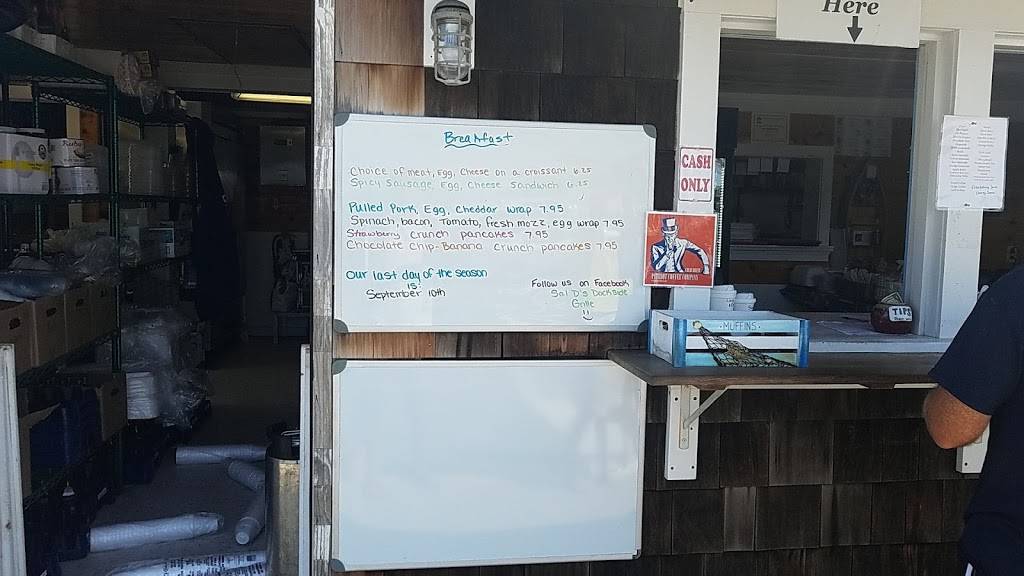 Here
Breakfast
Choice of meat, Egg, Cheese on a croissant 6.25
Spicy Sausage, Egg, Cheese Sandwich 6.25
Pulled Pork, Egg, Cheddar wrap 7.95
Spinach, bacon, Tomato, fresh mozz, egg wrap 7.95
Strawberry crunch pancakes 7.95
Chocolate Chip-Banana crunch pancakes 7.95
Our last day of the season
is:
September 10th
Follow us on Facebook
Sal D's Dockside
Grille
CASH
ONLY
MUFFINS
TIPS